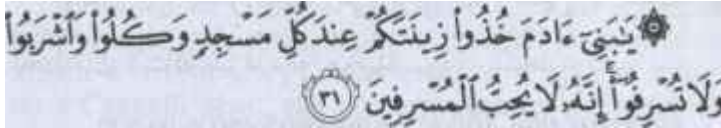 ۞ يَٰبَنِيٓ ءَادَمَ خُذُواْ زِينَتَكُمۡ عِندَ كُلِّ مَسۡجِدٖ وَكُلُواْ وَٱشۡرَبُواْ
وَلَا تُسۡرِفُوٓاْۚ إِنَّهُۥ لَا يُحِبُّ ٱلۡمُسۡرِفِينَ ٣١